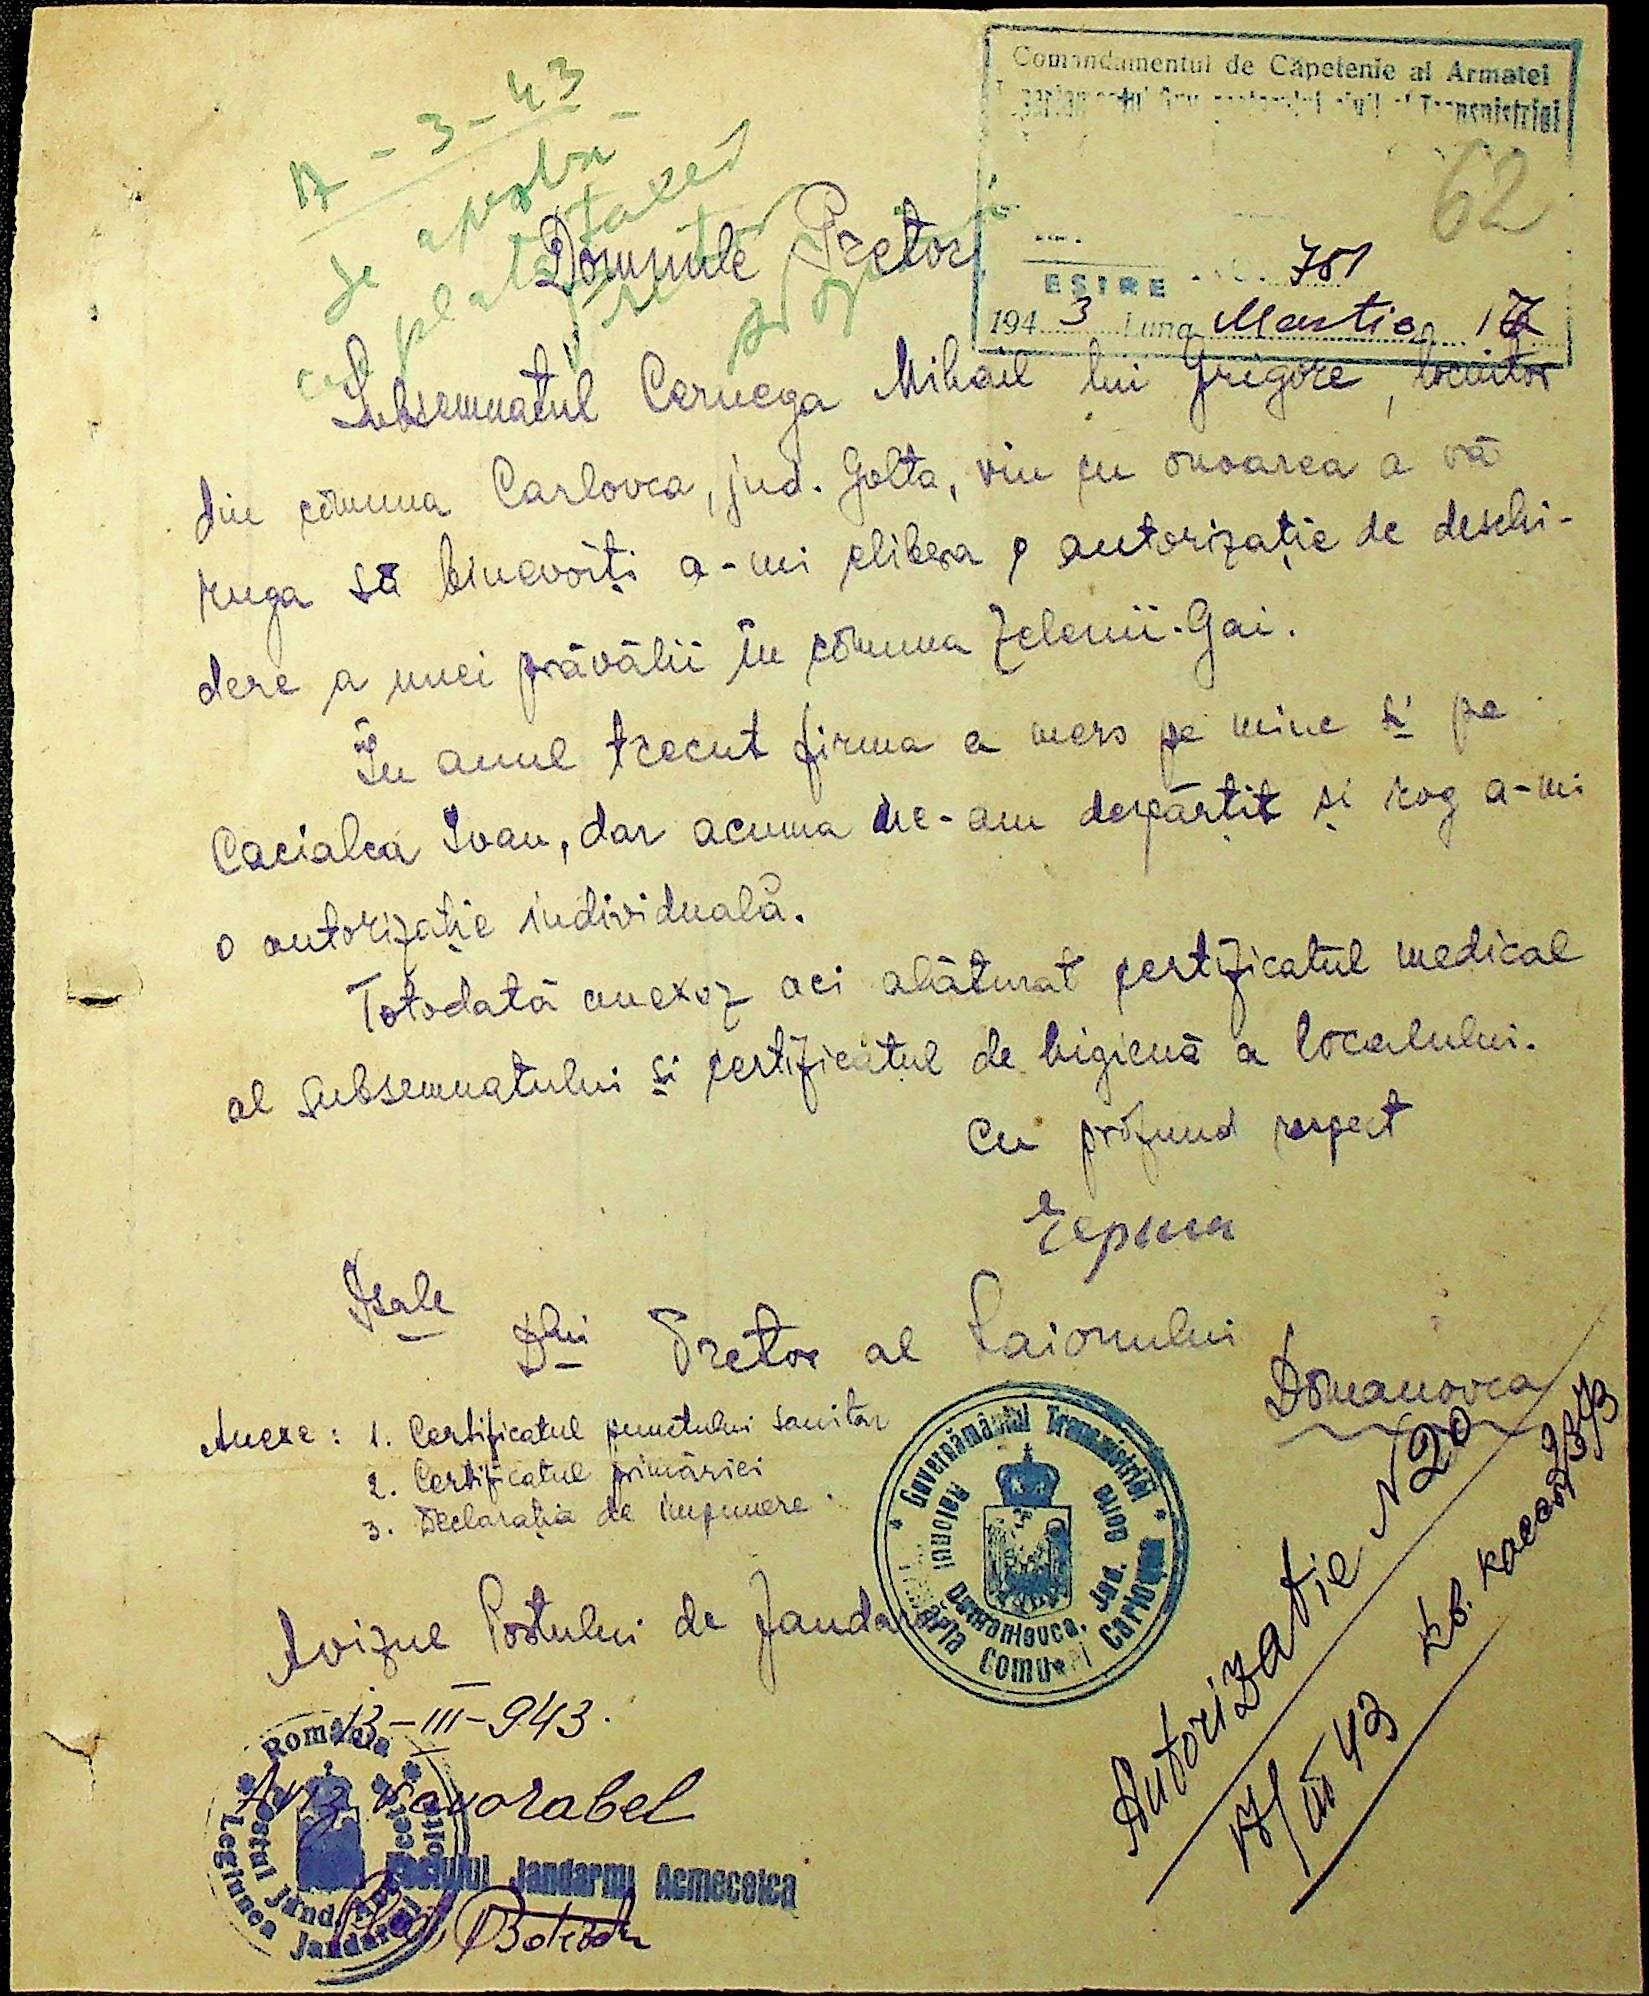 Comandamentul de Capetenie al Armatei
Transnistriei
62
EȘIRE No. 751
1943 Luna Martie 17
17-3-43
Se aprobă
cu plata taxei
Domnule Pretor
Subsemnatul Cernega Mihail lui Grigore, locuitor
din comuna Carlovca, jud. Golta, viu cu onoarea a vă
ruga să binevoiți a-mi elibera o autorizație de deschi-
dere a unei prăvălii în comuna Zelenii-Gai.
În anul trecut firma a mers pe mine și pe
Cacialca Ivan, dar acuma ne-am despărțit și rog a-mi
o autorizație individuală.
Totodată anexez aci alăturat certificatul medical
al subsemnatului și certificatul de higienă a localului.
Cu profund respect
Dsale
Dlui Pretor al Raionului
Domanovca
Anexe: 1. Certificatul punctului sanitar
2. Certificatul primăriei
3. Declarația de impunere.
Guvernământul Transnistriei
Raionul Domanieuca, Jud. Golta
Primăria Comunei Carlovca
Avizul Postului de Jandarmi
13-III-943.
Aviz favorabel
România
Legiunea Jandarmi
Postul Jandarmi Acmecetca
Autorizatie N 20
17/III 43
кв.